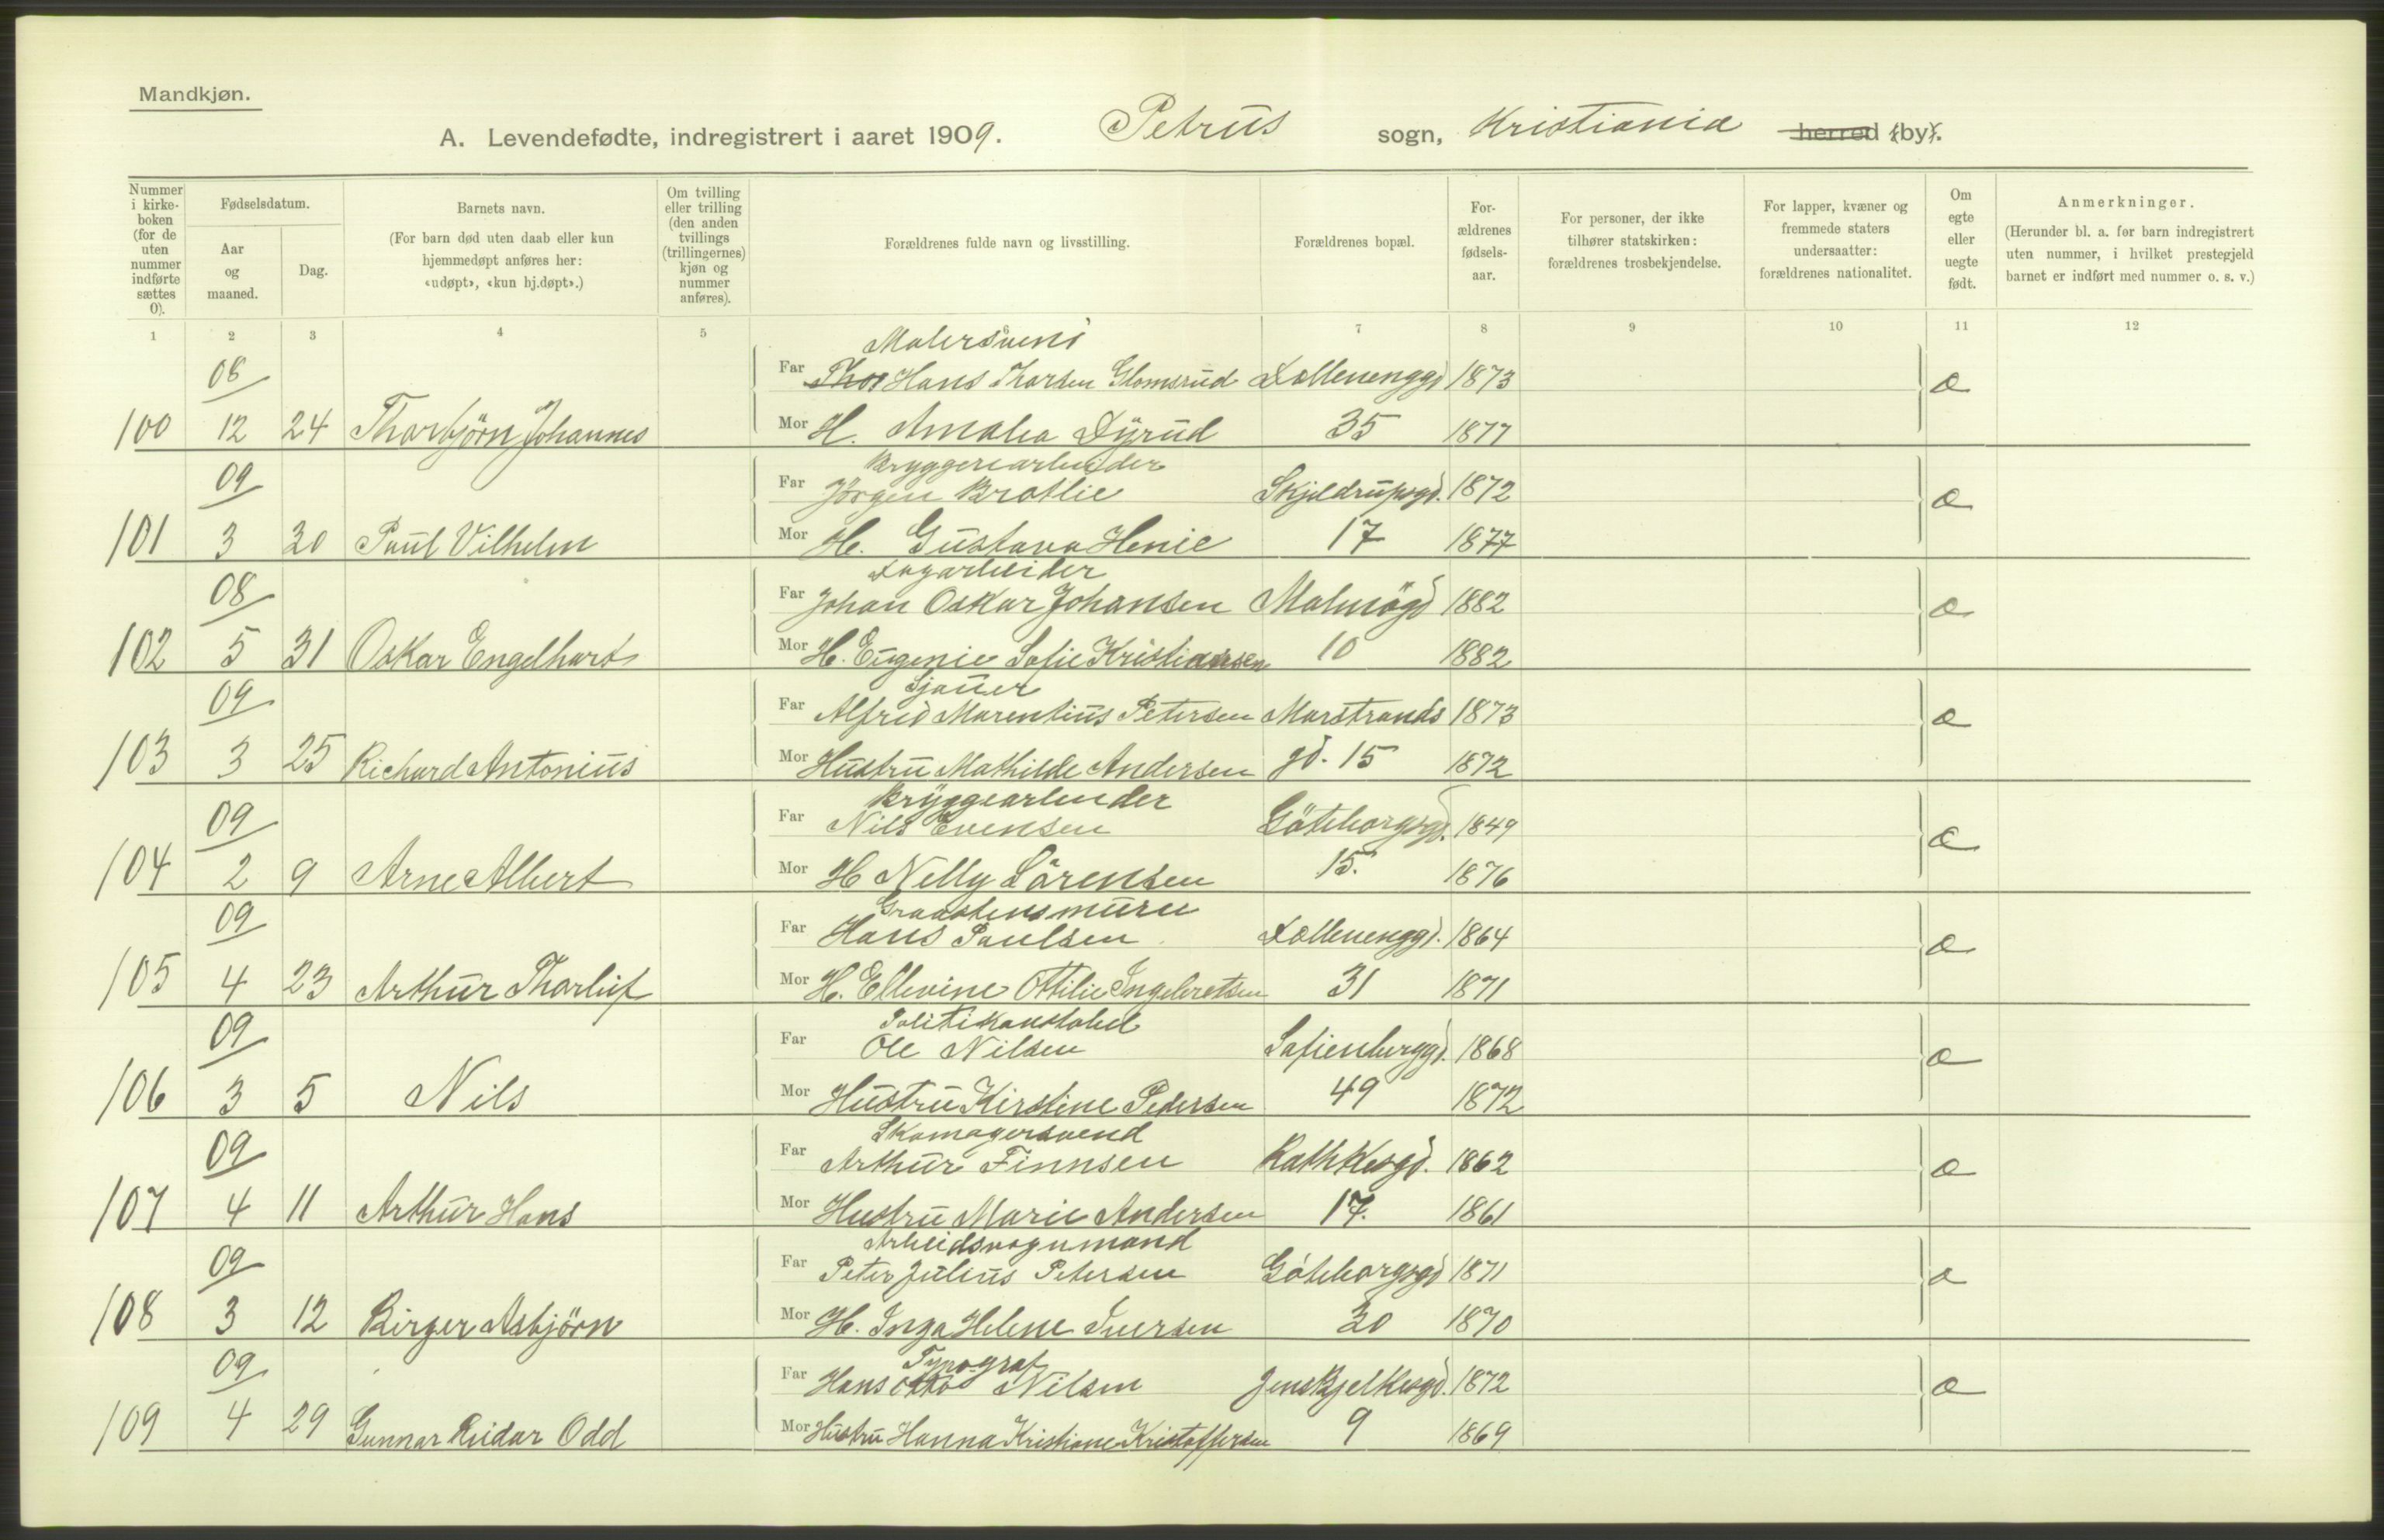 Mandkjøn.
A. Levendefødte, indregistrert i aaret 1909. Petrus sogn, Kristiania herred (by).
Nummer i kirkeboken (for de uten nummer indførte sættes 0).
Fødselsdatum.
Aar og maaned.
Dag.
Barnets navn.
(For barn død uten daab eller kun hjemmedøpt anføres her: «udøpt», «kun hj.døpt».)
Om tvilling eller trilling (den anden tvillings (trillingernes) kjøn og nummer anføres).
Forældrenes fulde navn og livsstilling.
Forældrenes bopæl.
Forældrenes fødselsaar.
For personer, der ikke tilhører statskirken: forældrenes trosbekjendelse.
For lapper, kvæner og fremmede staters undersaatter: forældrenes nationalitet.
Om egte eller uegte født.
Anmerkninger.
(Herunder bl. a. for barn indregistrert uten nummer, i hvilket prestegjeld barnet er indført med nummer o. s. v.)
1 2 3 4 5 6 7 8 9 10 11 12
Malersvend
08 Far Thor Hans Thorsen Glomsrud Dællenenggd 1873 e
100 12 24 Thorbjörn Johannes Mor H. Amalia Dyrud 35 1877
Bryggeriarbeider
09 Far Jörgen Bratlie Skjeldrupsgd. 1872 e
101 3 30 Paul Vilhelm Mor H. Gustava Henie 17 1877
Dagarbeider
08 Far Johan Oskar Johansen Malmögd 1882 e
102 5 31 Oskar Engelhart Mor H. Eugenie Sofie Kristiansen 10 1882
Sjauer
09 Far Alfred Marentius Petersen Marstrands 1873 e
103 3 25 Richard Antonius Mor Hustru Mathilde Andersen gd. 15 1872
Bryggearbeider
09 Far Nils Evensen Göteborgsgd. 1849 e
104 2 9 Arne Albert Mor H Nelly Sörensen 15. 1876
Graastensmurer
09 Far Hans Paulsen Dællenenggd. 1864 e
105 4 23 Arthur Thorleif Mor H. Ellevine Ottilie Ingebretsen 31 1871
Politikonstabel
09 Far Ole Nilsen Sofienberggd. 1868 e
106 3 5 Nils Mor Hustru Kirstine Pedersen 49 1872
Skomagersvend
09 Far Arthur Finnsen Rathkesgd. 1862 e
107 4 11 Arthur Hans Mor Hustru Marie Andersen 17. 1861
Arbeidsvognmand
09 Far Peter Julius Petersen Göteborgsgd 1871 e
108 3 12 Birger Asbjörn Mor H. Inga Helene Iversen 30 1870
Typograf
09 Far Hans Otto Nilsen Jens Bjelkesgd. 1872 e
109 4 29 Gunnar Reidar Odd Mor Hustru Hanna Kristiane Kristoffersen 9 1869